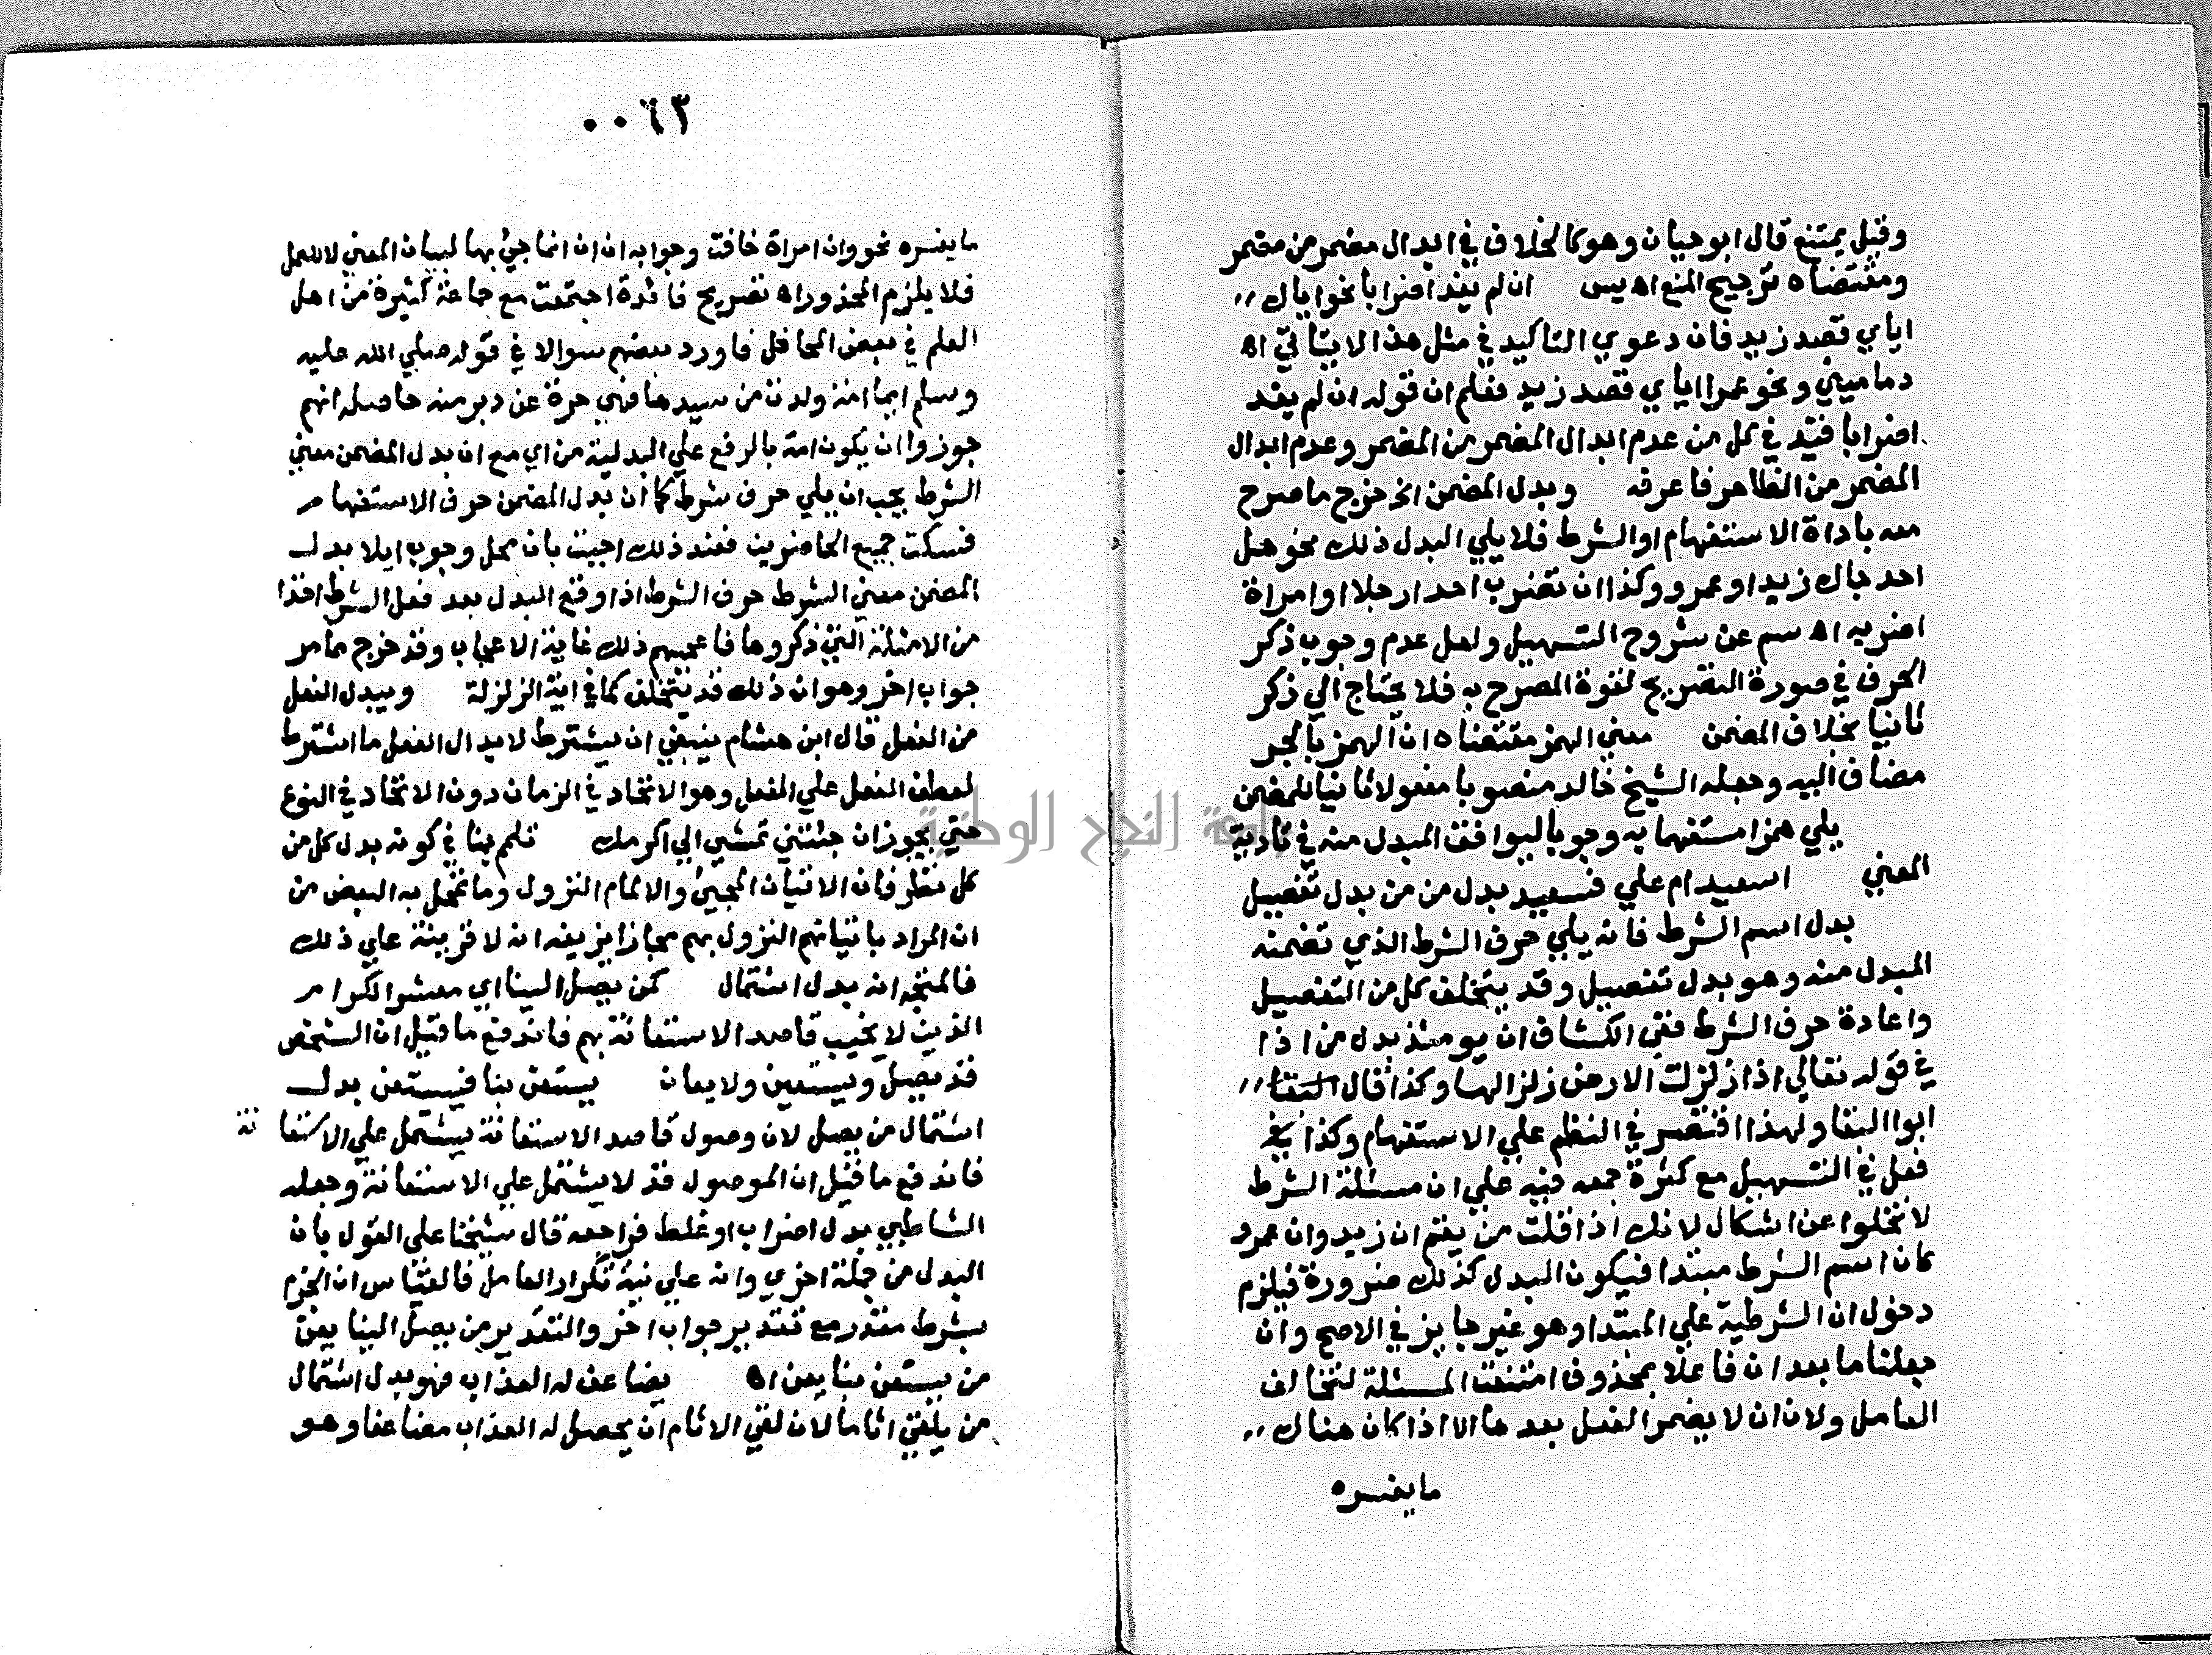 وقيل يمتنع قال ابو حيان وهو كالخلاف في ابدال مضمر من مضمر
ومقتضاه ترجيح المنع اه يس ان لم يفد اضرابا نحو اياك
اياي قصد زيد فان دعوي التاكيد في مثل هذا لا يتاتي اه
دماميني ونحو عمرا اياي قصد زيد فعلم ان قوله ان لم يفد
اضرابا قيد في كل من عدم ابدال المضمر من المضمر وعدم ابدال
المضمر من الظاهر فاعرفه وبدل المضمن الخ خرج ما صرح
معه باداة الاستفهام او الشرط فلا يلي البدل ذلك نحو هل
احد جاك زيد او عمرو وكذا ان تضرب احدا رجلا او امراة
اضربه اه سم عن شروح التسهيل ولعل عدم وجوب ذكر
الحرف في صورة التصريح لقوة المصرح به فلا يحتاج الي ذكر
ثانيا بخلاف المضمن معني الهمز مقتضاه ان الهمز بالجر
مضاف اليه وجعله الشيخ خالد منصوبا مفعولا ثانيا للمضمن
يلي همزا مستفهما به وجوبا ليوافق المبدل منه في تادية
المعني اسعيد ام علي فسعيد بدل من من بدل تفصيل
بدل اسم الشرط فانه يلي حرف الشرط الذي تضمنه
المبدل منه وهو بدل تفصيل وقد يتخلف كل من التفصيل
واعادة حرف الشرط ففي الكشاف ان يومئذ بدل من اذا
في قوله تعالي اذا زلزلت الارض زلزالها وكذا قال البقا
ابوا البقا ولهذا اقتصر في النظم علي الاستفهام وكذا
فعل في التسهيل مع كثرة جمعه فيه علي ان مسئلة الشرط
لا تخلوا عن اشكال لانك اذا قلت من يقم ان زيد وان عمرو
كان اسم الشرط مبتدا فيكون البدل كذلك ضرورة فيلزم
دخول ان الشرطية علي المبتدا وهو غير جايز في الاصح وان
جعلنا ما بعد ان فاعلا بمحذوف امتنعت المسئلة لتخالف
العامل ولان ان لا يضمر الفعل بعدها الا اذا كان هناك
ما يفسره
٠٠٦٣
ما يفسره نحو وان امراة خافت وجوابه ان ان انما جيئ بها لبيان المعني لا للعمل
فلا يلزم المحذور اه تصريح فائدة اجتمعت مع جماعة كثيرة من اهل
العلم في بعض المحافل فاورد بعضهم سوالا في قوله صلي الله عليه
وسلم ايما امة ولدت من سيدها فهي حرة عن دبر منه حاصله انهم
جوزوا ان يكون امة بالرفع علي البدلية من اي مع ان بدل المضمن معني
الشرط يجب ان يلي حرف شرط كما ان بدل المضمن حرف الاستفهام
فسكت جميع الحاضرين فعند ذلك اجبت بان محل وجوب ايلا بدل
المضمن معني الشرط حرف الشرط اذا وقع البدل بعد فعل الشرط اخذا
من الامثلة التي ذكروها فاعجبهم ذلك غاية الاعجاب وقد خرج مما مر
جواب اخر وهو ان ذلك قد يتخلف كما في اية الزلزلة ويبدل الفعل
من الفعل قال ابن هشام ينبغي ان يشترط لابدال الفعل ما اشترط
لعطف الفعل علي الفعل وهو الاتحاد في الزمان دون الاتحاد في النوع
حتي يجوز ان جئتني تمشي الي اكرمك تلمم بنا في كونه بدل كل من
كل نظر فان الاتيان المجيئ والالمام النزول وما تمحل به البعض من
ان المراد باتيانهم النزول بهم مجازا يزيفه انه لا قرينة علي ذلك
فالمتجه انه بدل اشتمال كمن يصل الينا اي معشر الكرام
الذين لا يخيب قاصد الاستغاثة بهم فاندفع ما قيل ان الشخص
قد يصل ويستعين ولا يعان يستعن بنا فيستعن بدل
اشتمال من يصل لان وصول قاصد الاستغاثة يشتمل علي الاستغا ثة
فاندفع ما قيل ان الموصول قد لا يشتمل علي الاستغاثة وجعله
الشاطبي بدل اضراب او غلط فراجعه قال شيخنا علي القول بان
البدل من جملة اخري وانه علي نية تكرار العامل فالقياس ان الجزم
بشرط مقدر مع تقدير جواب اخر والتقدير من يصل الينا يعن
من يستعن بنا يعن اه يضاعف له العذاب فهو بدل اشتمال
من يلقي اثاما لان لقي الاثام ان يحصل له العذاب مضاعفا وهو